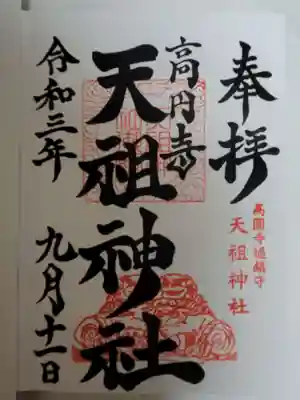 奉拝
高円寺
天祖神社
令和三年 九月十一日
高圓寺過鎮守
天祖神社